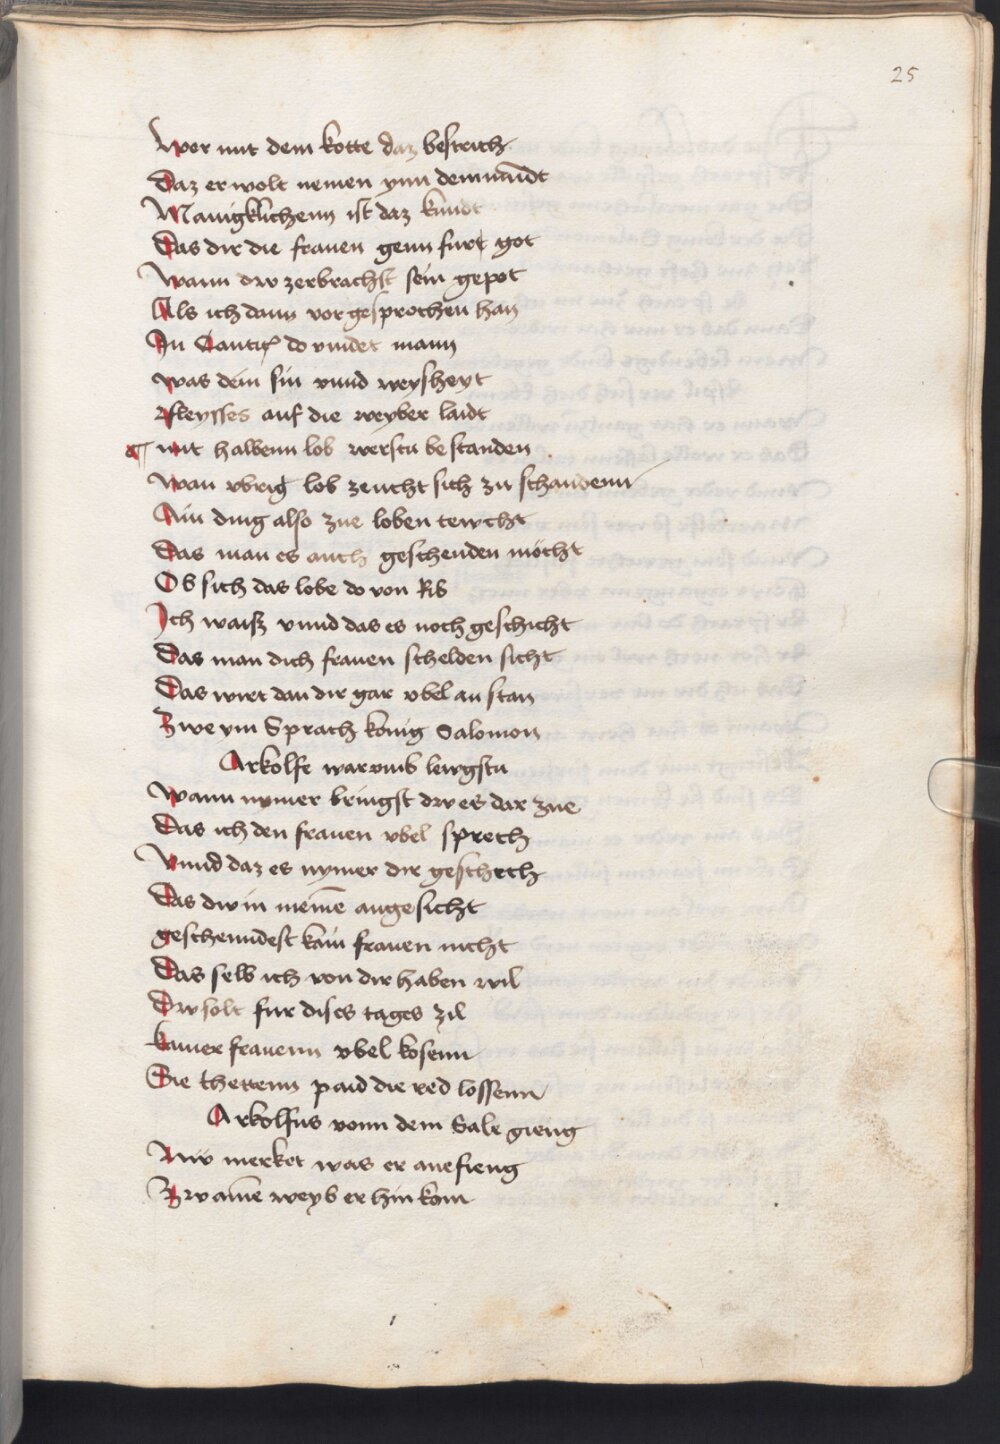 25
Wer mit dem kotte daz bestrich
Daz er wolt nemen ynn dem mundt
Manigklichenn ist daz kundt
Das dir die frauen genn furt got
Wann dw zerbrachst sein gepot
Als ich dann vor gesprochen han
In Cantic do vindet mann
was dein sin vnnd weysheyt
fleysses auf die weyber laidt
mit halbenn lob werstu bestanden
Wan vbrig lob zeucht sich zu schandenn
Ain ding also zue loben tewcht
Das man es auch geschenden möcht
Ob sich das lobe do von Rib
Ich waiß vnnd das es noch geschicht
Das man dich frauen schelden sicht
Das wirt dan dir gar vbel an stan
Zwe ym Sprach konig Salomon
Arkolfe warumb lewgstu
Wann nymer bringst dw es dar zue
Das ich den frauen vbel sprech
Vnnd daz es nymer dir geschech
Das dw in meinē angesicht
geschenndest kain frauen nicht
Das selb ich von dir haben wil
Dw solt fur dises tages zil
kainer frauenn vbel kosenn
Sie thettenn paid die red lossenn
Arkolfus vonn dem Sale gieng
Nw merket was er anefieng
Zw ainē weyb er hin kom